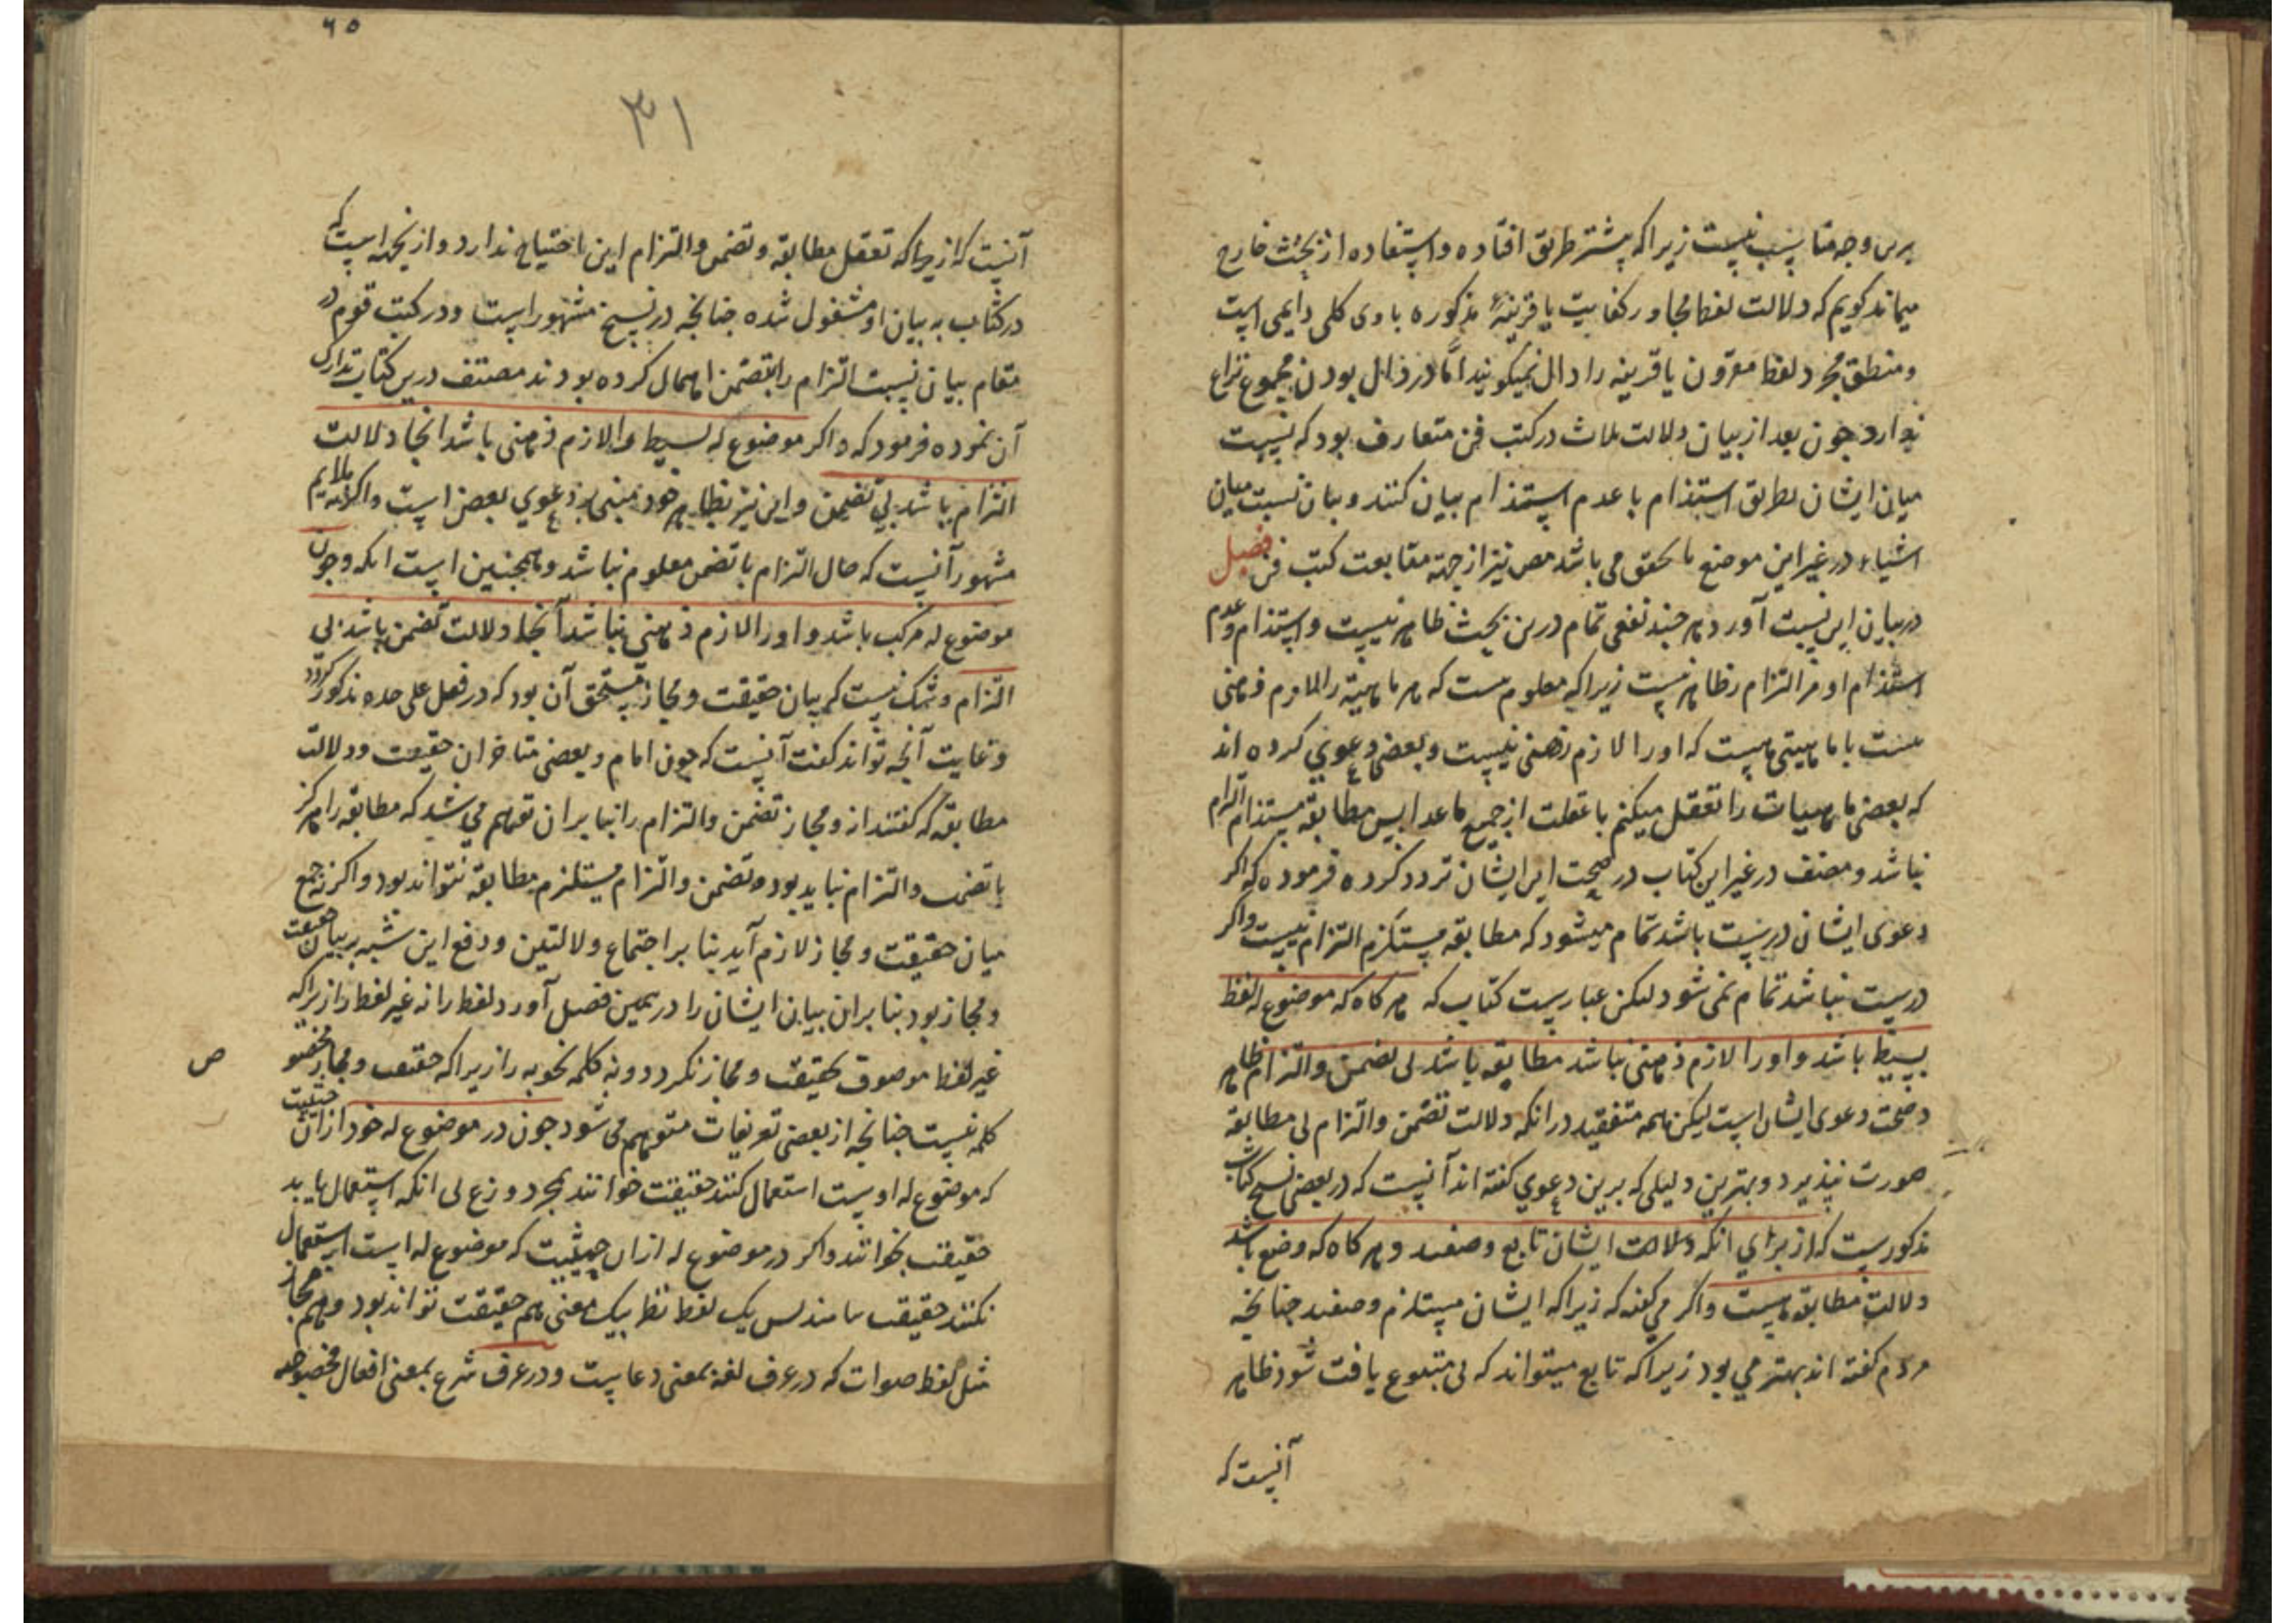 برین وجه مناسب نیست زیرا که بیشتر طریق افتاده و استفاده از بحث خارج
میماند کویم که دلالت لفظ مجاور کفایت با قرینهٔ مذکوره باوی کلی دایمی است
و منطق مجرد لفظ مقرون با قرینه را دال نمیکویند اما در دال بودن مجموع نزاع
ندارد چون بعد از بیان دلالت ثلاث در کتب فن متعارف بود که نسبت
میان ایشان بطریق استلذام با عدم استلذام بیان کنند و بیان نسبت میان
اشیاء در غیر این موضع ما یحقق می باشد مص نیز از جهة متابعت کتب فن فصل
در بیان این نسبت آورد هر چند نفعی تمام درین بحث ظاهر نیست و استلذام و عدم
استلذام او مر التزام را ظاهر نیست زیرا که معلوم نیست که هر ماهیة را لازم ذهنی
هست یا ماهیتی هست که او را لازم ذهنی نیست و بعضی دعوی کرده اند
که بعضی ماهیات را تعقل میکنیم با غفلت از جمیع ماعدا پس مطابقه مستلذام التزام
نباشد و مصنف در غیر این کتاب در صحت این ایشان تردد کرده فرموده که اکر
دعوی ایشان درست باشد تمام میشود که مطابقه مستلزم التزام نیست و اکر
درست نباشد تمام نمی شود لیکن عبارت کتاب که هر کاه که موضوع له لفظ
بسیط باشد و او را لازم ذهنی نباشد مطابقه باشد بی تضمن و التزام ظاهر
و صحت دعوی ایشان است لیکن همه متفقند در انکه دلالت تضمن و التزام بی مطابقه
صورت نپذیرد و بهترین دلیلی که برین دعوی کفته اند آنست که در بعضی نسخ کتاب
مذکورست که از برای انکه دلالت ایشان تابع وضعند و هر کاه که وضع باشد
دلالت مطابقه هست و اکر می کفت که زیرا که ایشان مستلزم وضعند چنانچه
مردم کفته اند بهتر می بود زیرا که تابع میتواند که بی متبوع یافت شود ظاهر
آنست که
٦٥
٣١
آنست که از برا که تعقل مطابقه و تضمن و التزام این احتیاج ندارد و از نجهة است که
در کتاب به بیان او مشغول شده چنانچه در نسخ مشهور است و در کتب قوم در
مقام بیان نسبت التزام را بتضمن اهمال کرده بودند مصنف درین کتاب تدارک
آن نموده فرمود که و اکر موضوع له بسیط و او را لازم ذهنی باشد انجا دلالت
التزام باشد بی تضمن و این نیز بظاهر خود مبنی بر دعوی بعض است و اکر نه ملایم
مشهور آنست که حال التزام با تضمن معلوم نباشد و همچنین است انکه و چون
موضوع له مرکب باشد و او را لازم ذهنی نباشد آنجا دلالت تضمن باشد بی
التزام و شک نیست که بیان حقیقت و مجاز مستحق آن بود که در فصل علی حده مذکور کردد
و غایت آنچه تواند کفت آنست که چون امام و بعضی متاخران حقیقت و دلالت
مطابقه که کفتند از و مجاز تضمن و التزام را بنا بر ان توهم می شد که مطابقه را هرکز
با تضمن و التزام نباید بود و تضمن و التزام مستلزم مطابقه نتواند بود و اکر نه جمع
میان حقیقت و مجاز لازم آید بنا بر اجتماع دلالتین و دفع این شبه بر بیان حقیقت
و مجاز بود بنا بر ان بیان ایشان را در همین فصل آورد لفظ را نه غیر لفظ را زیرا که
غیر لفظ موصوف بحقیقت و مجاز نکردد و نه کلمه نحویه را زیرا که حقیقت و مجاز مختص
ص
کلمه نیست چنانچه از بعضی تعریفات متوهم می شود چون در موضوع له خود از ان حیثیت
که موضوع له اوست استعمال کنند حقیقت خوانند بمجرد وضع بی انکه استعمال یابد
حقیقت نخوانند و اکر در موضوع له از ان حیثیت که موضوع له است استعمال
نکنند حقیقت نباشد پس یک لفظ نظر بیک معنی هم حقیقت تواند بود و هم مجاز
مثل لفظ صلوات که در عرف لغة بمعنی دعا یست و در عرف شرع بمعنی افعال مخصوصه